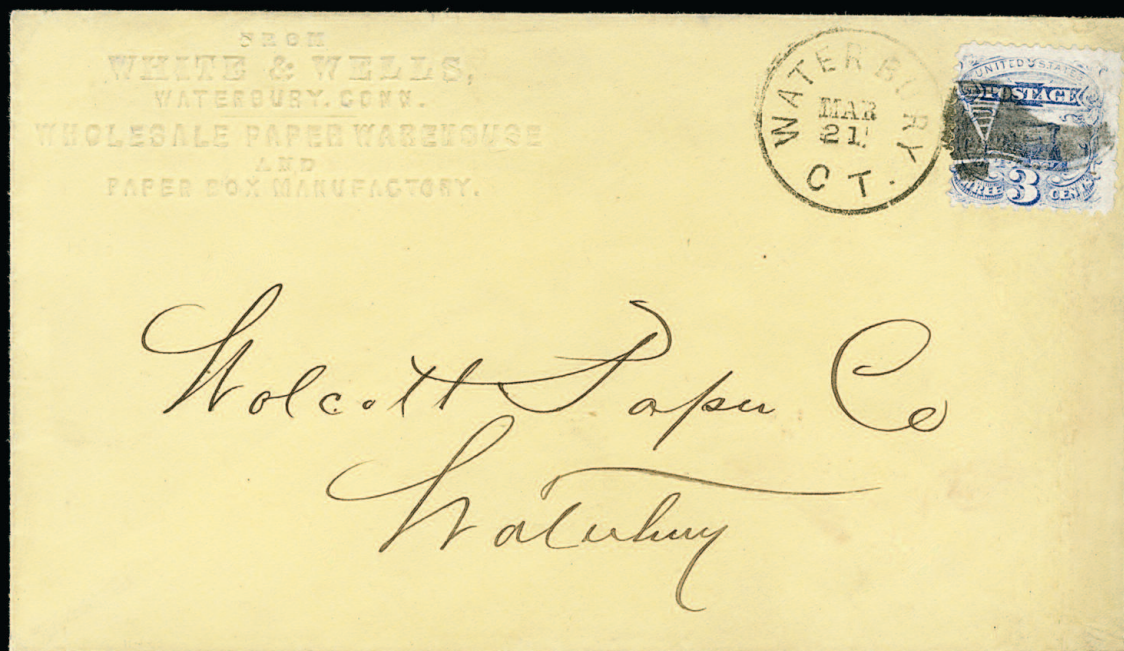 FROM
WHITE & WELLS,
WATERBURY. CONN.
WHOLESALE PAPER WAREHOUSE
AND
PAPER BOX MANUFACTORY.
WATERBURY
MAR
21
CT.
UNITED STATES
POSTAGE
THREE 3 CENTS
Wolcott Paper Co
Waterbury